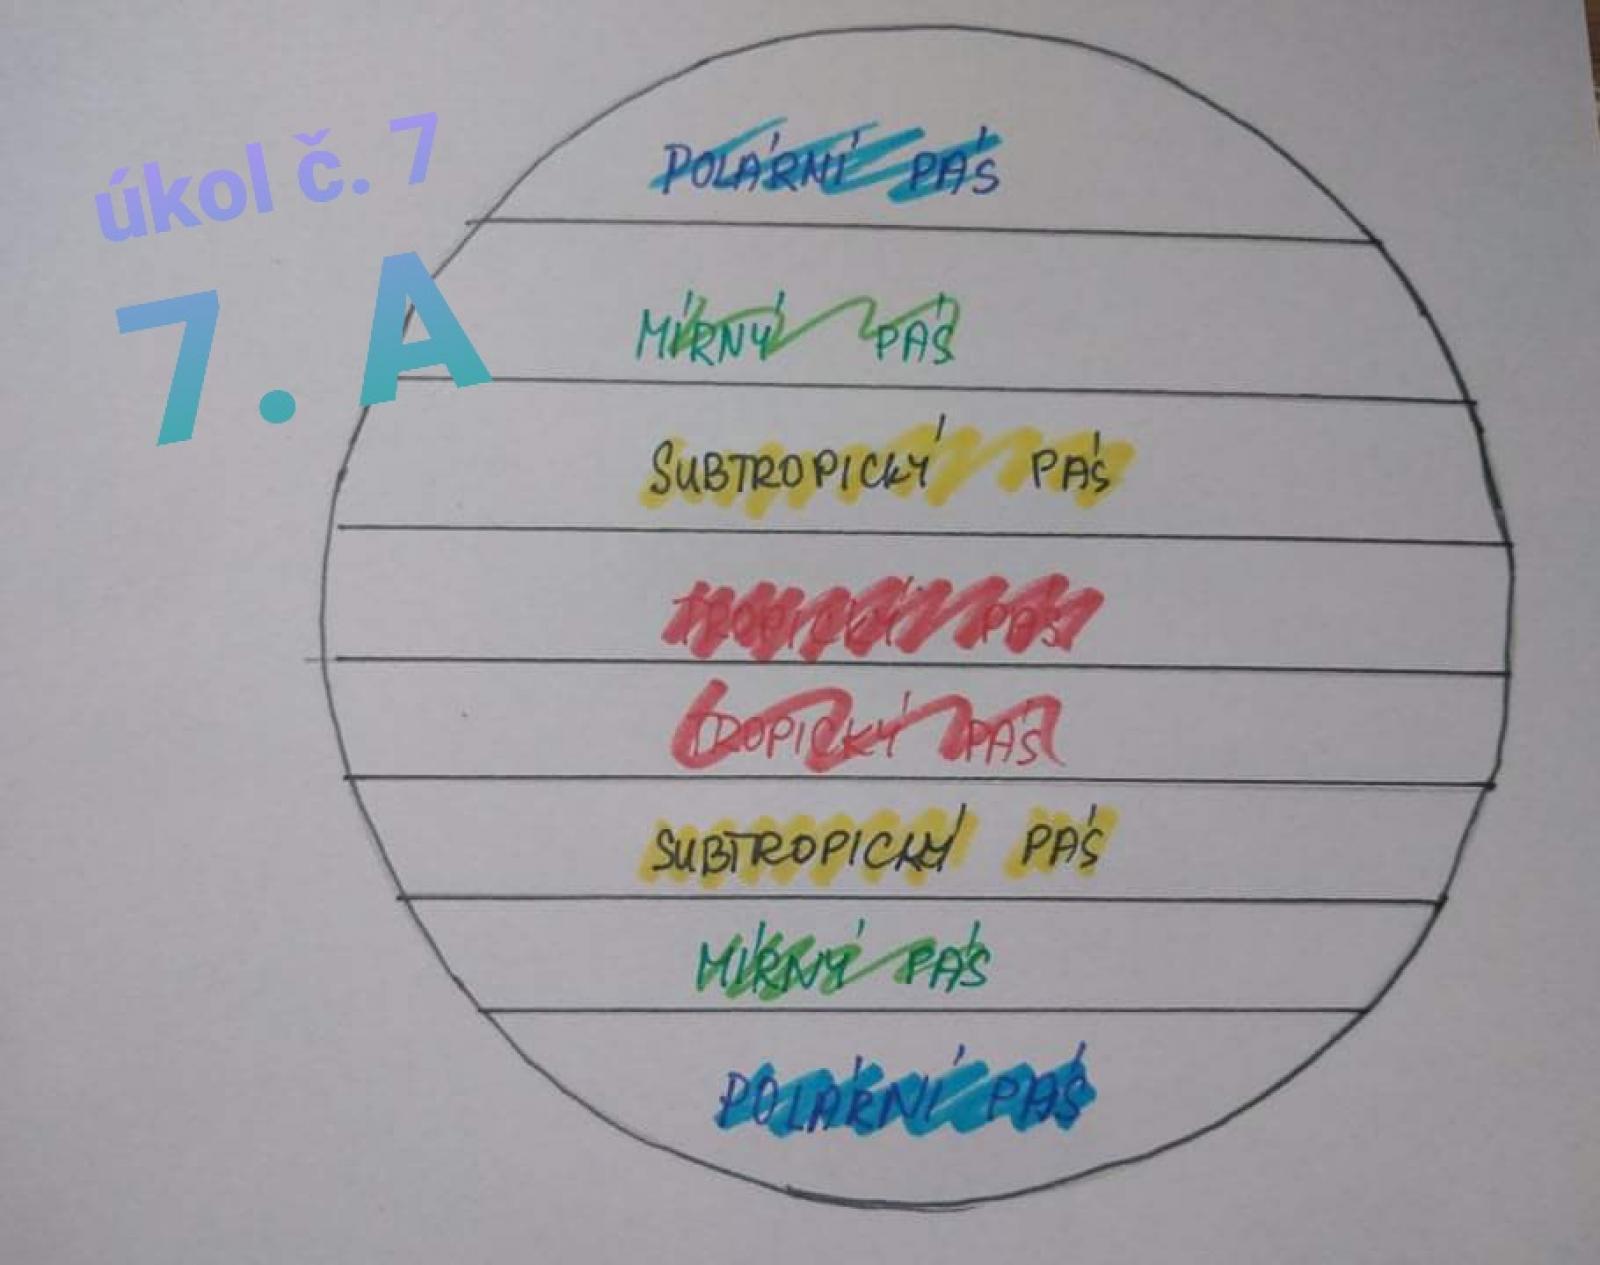 úkol č. 7
7. A
POLÁRNÍ PÁS
MÍRNÝ PÁS
SUBTROPICKÝ PÁS
TROPICKÝ PÁS
TROPICKÝ PÁS
SUBTROPICKÝ PÁS
MÍRNÝ PÁS
POLÁRNÍ PÁS